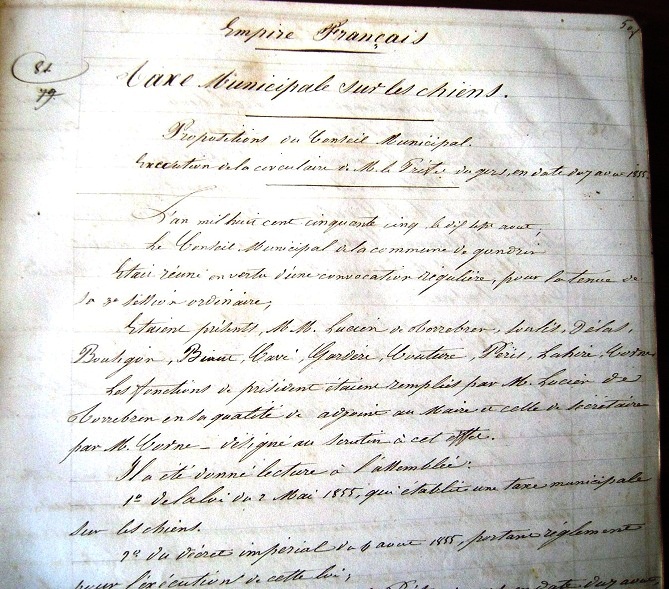 Empire Français
82
79
Taxe Municipale sur les chiens.
Propositions du Conseil Municipal.
Execution de la circulaire de M. le Préfet du gers, en date du 7 aout 1855.
L'an mil huit cent cinquante cinq le dix sept aout,
Le Conseil Municipal de la commune de gondrin
Etait réuni en vertu d'une convocation régulière, pour la tenue de
la 3e session ordinaire,
Etaient présents, M.M. Lucien de
Cave, Gardère, Couture, Péris, Lahire, Corne
Les fonctions de président étaient remplies par M. Lucien de
en sa qualité de adjoint au Maire et celle de secrétaire
par M. Corne designé au scrutin à cet effet.
Il a été donné lecture à l'assemblée.
1o de la loi du 2 Mai 1855, qui établit une taxe municipale
sur les chiens.
2o du décret impérial du 4 aout 1855, portant réglement
pour l'exécutions de cette loi,
en date du 7 aout,